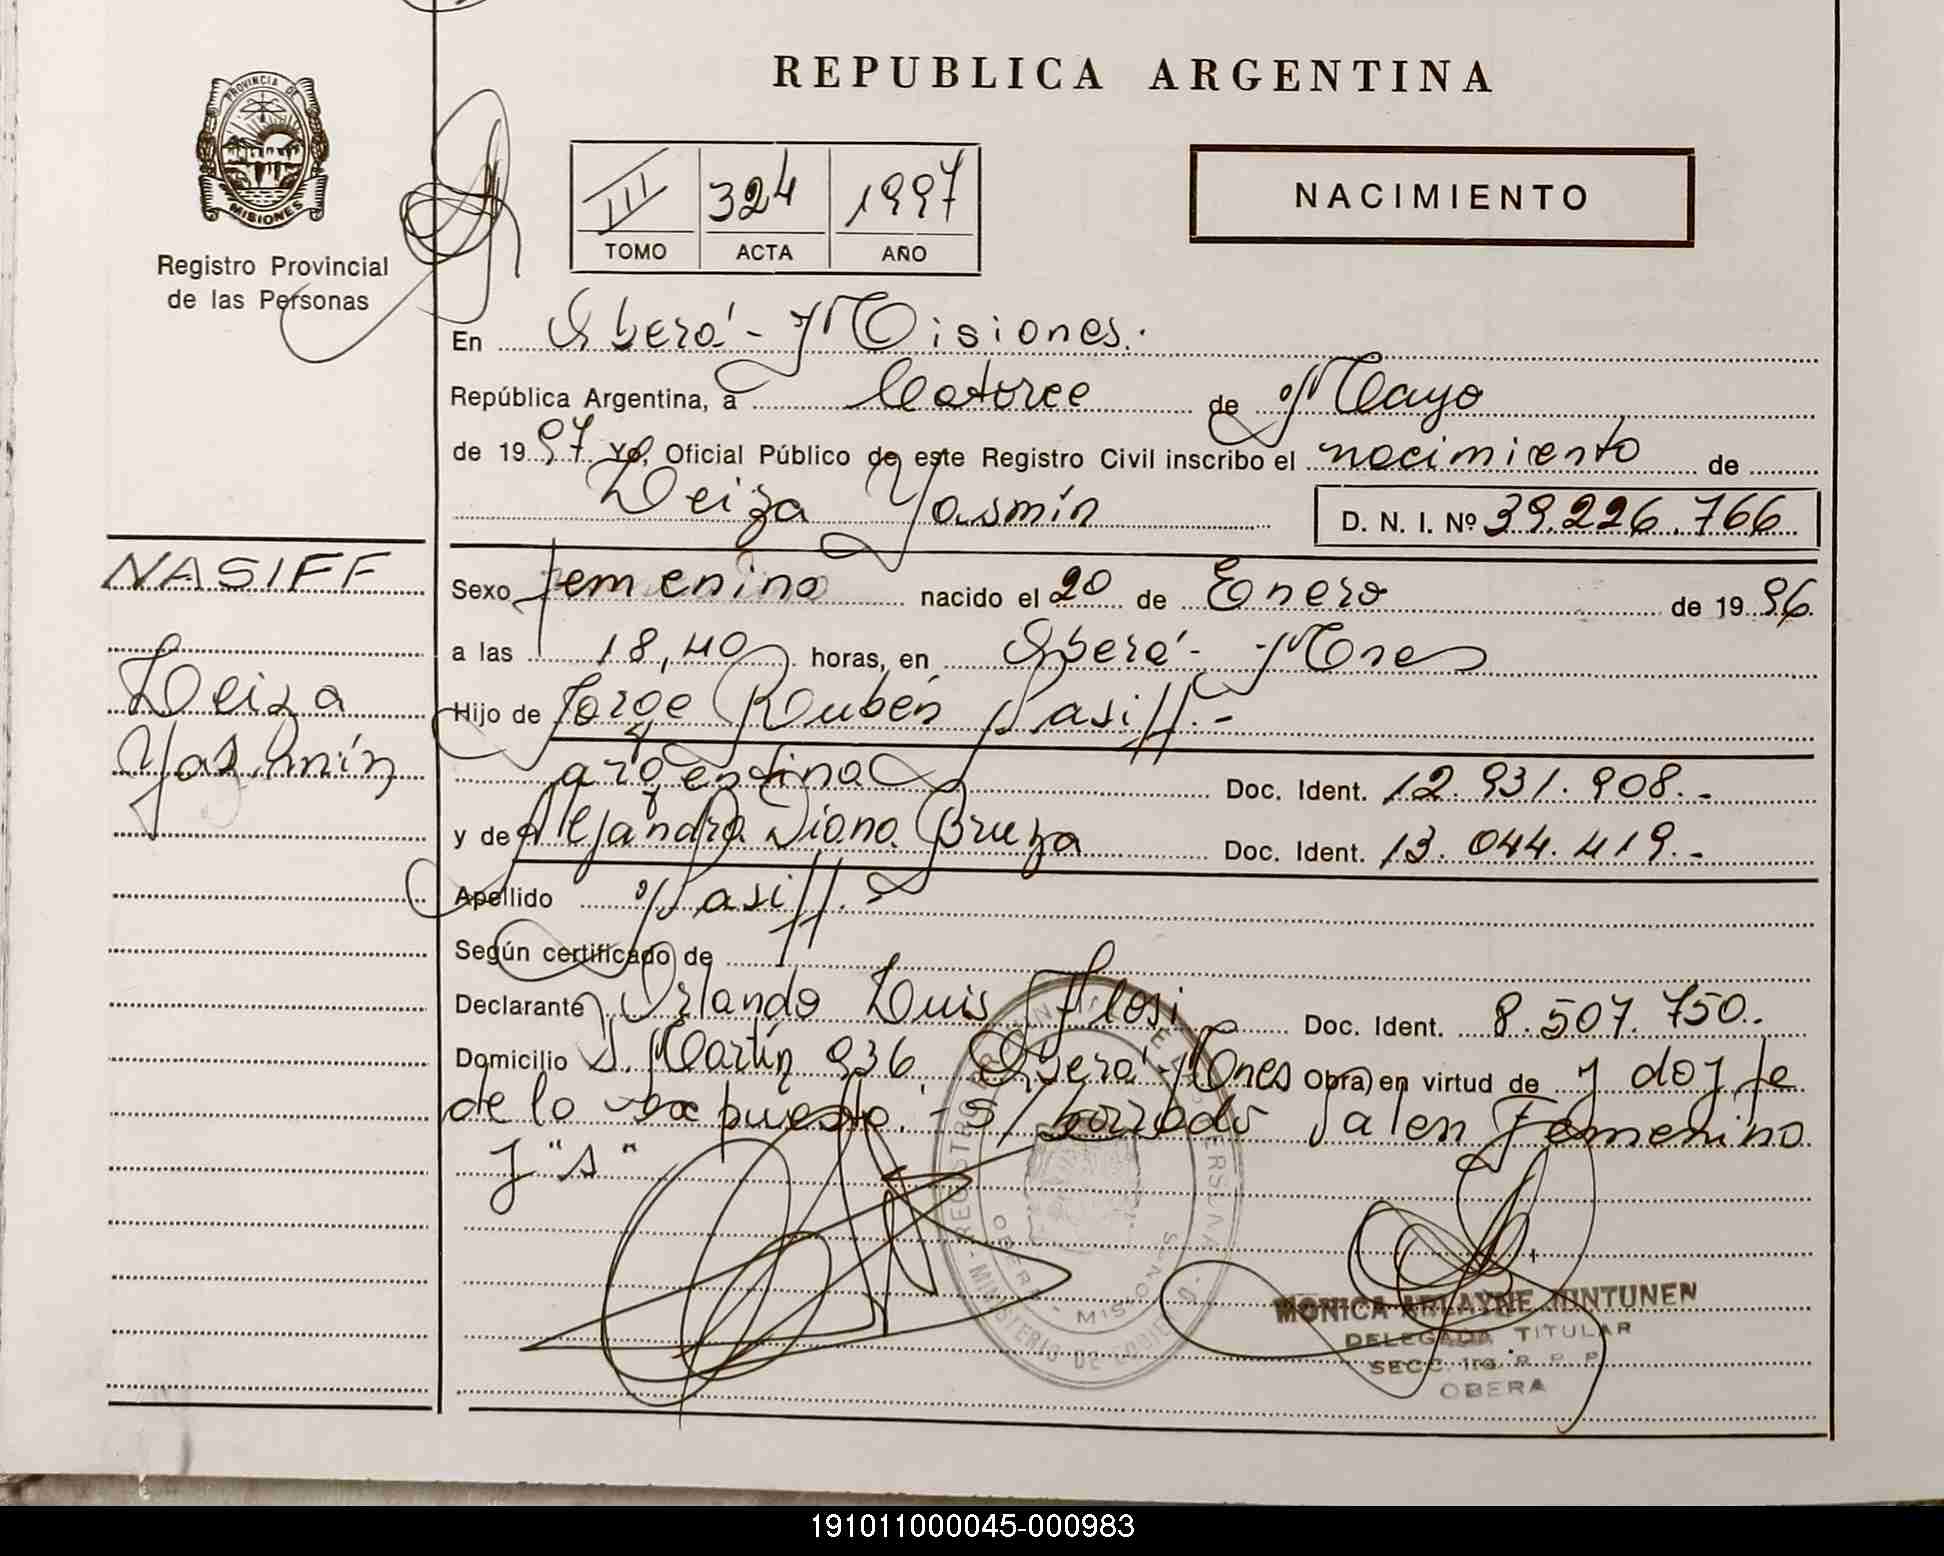 REPUBLICA ARGENTINA
PROVINCIA DE
MISIONES
Registro Provincial
de las Personas
III 324 1997
TOMO ACTA AÑO
NACIMIENTO
En Oberá - Misiones.
República Argentina, a Catorce de Mayo
de 1997 Yo, Oficial Público de este Registro Civil inscribo el nacimiento de
Leiza Yasmín D. N. I. Nº 39.226.766
NASIFF
Leiza
Yasmín
Sexo femenino nacido el 20 de Enero de 1996.
a las 18,40 horas, en Oberá - Mnes
Hijo de Jorge Rubén Nasiff.-
argentina Doc. Ident. 12.931.908.-
y de Alejandra Diana Bruza Doc. Ident. 13.044.419.-
Apellido Nasiff.
Según certificado de
Declarante Orlando Luis Alosi Doc. Ident. 8.507.750.
Domicilio S. Martín 936 Oberá - Mnes Obra en virtud de y doy fe
de lo expuesto. - s/borrado Vale en Femenino
y "s"
MONICA ARLAYNE
DELEGADA TITULAR
SECC. 1ra. R. P. P.
OBERA
OBERA - MISIONES
MINISTERIO DE GOBIERNO
191011000045-000983